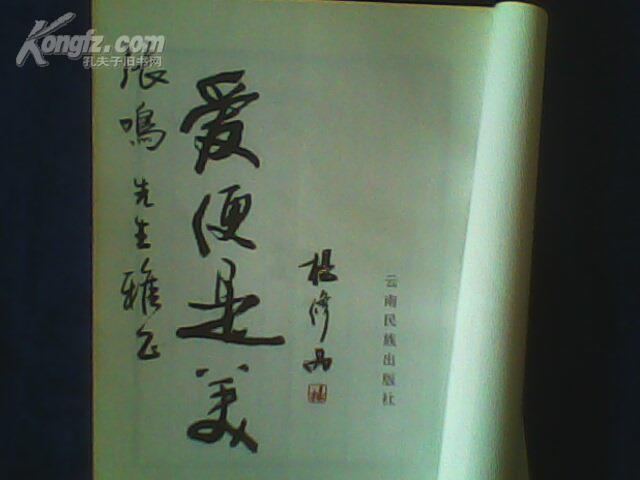 Kongfz.com
孔夫子旧书网
张鸣先生雅正
爱便是美
杨修品
云南民族出版社